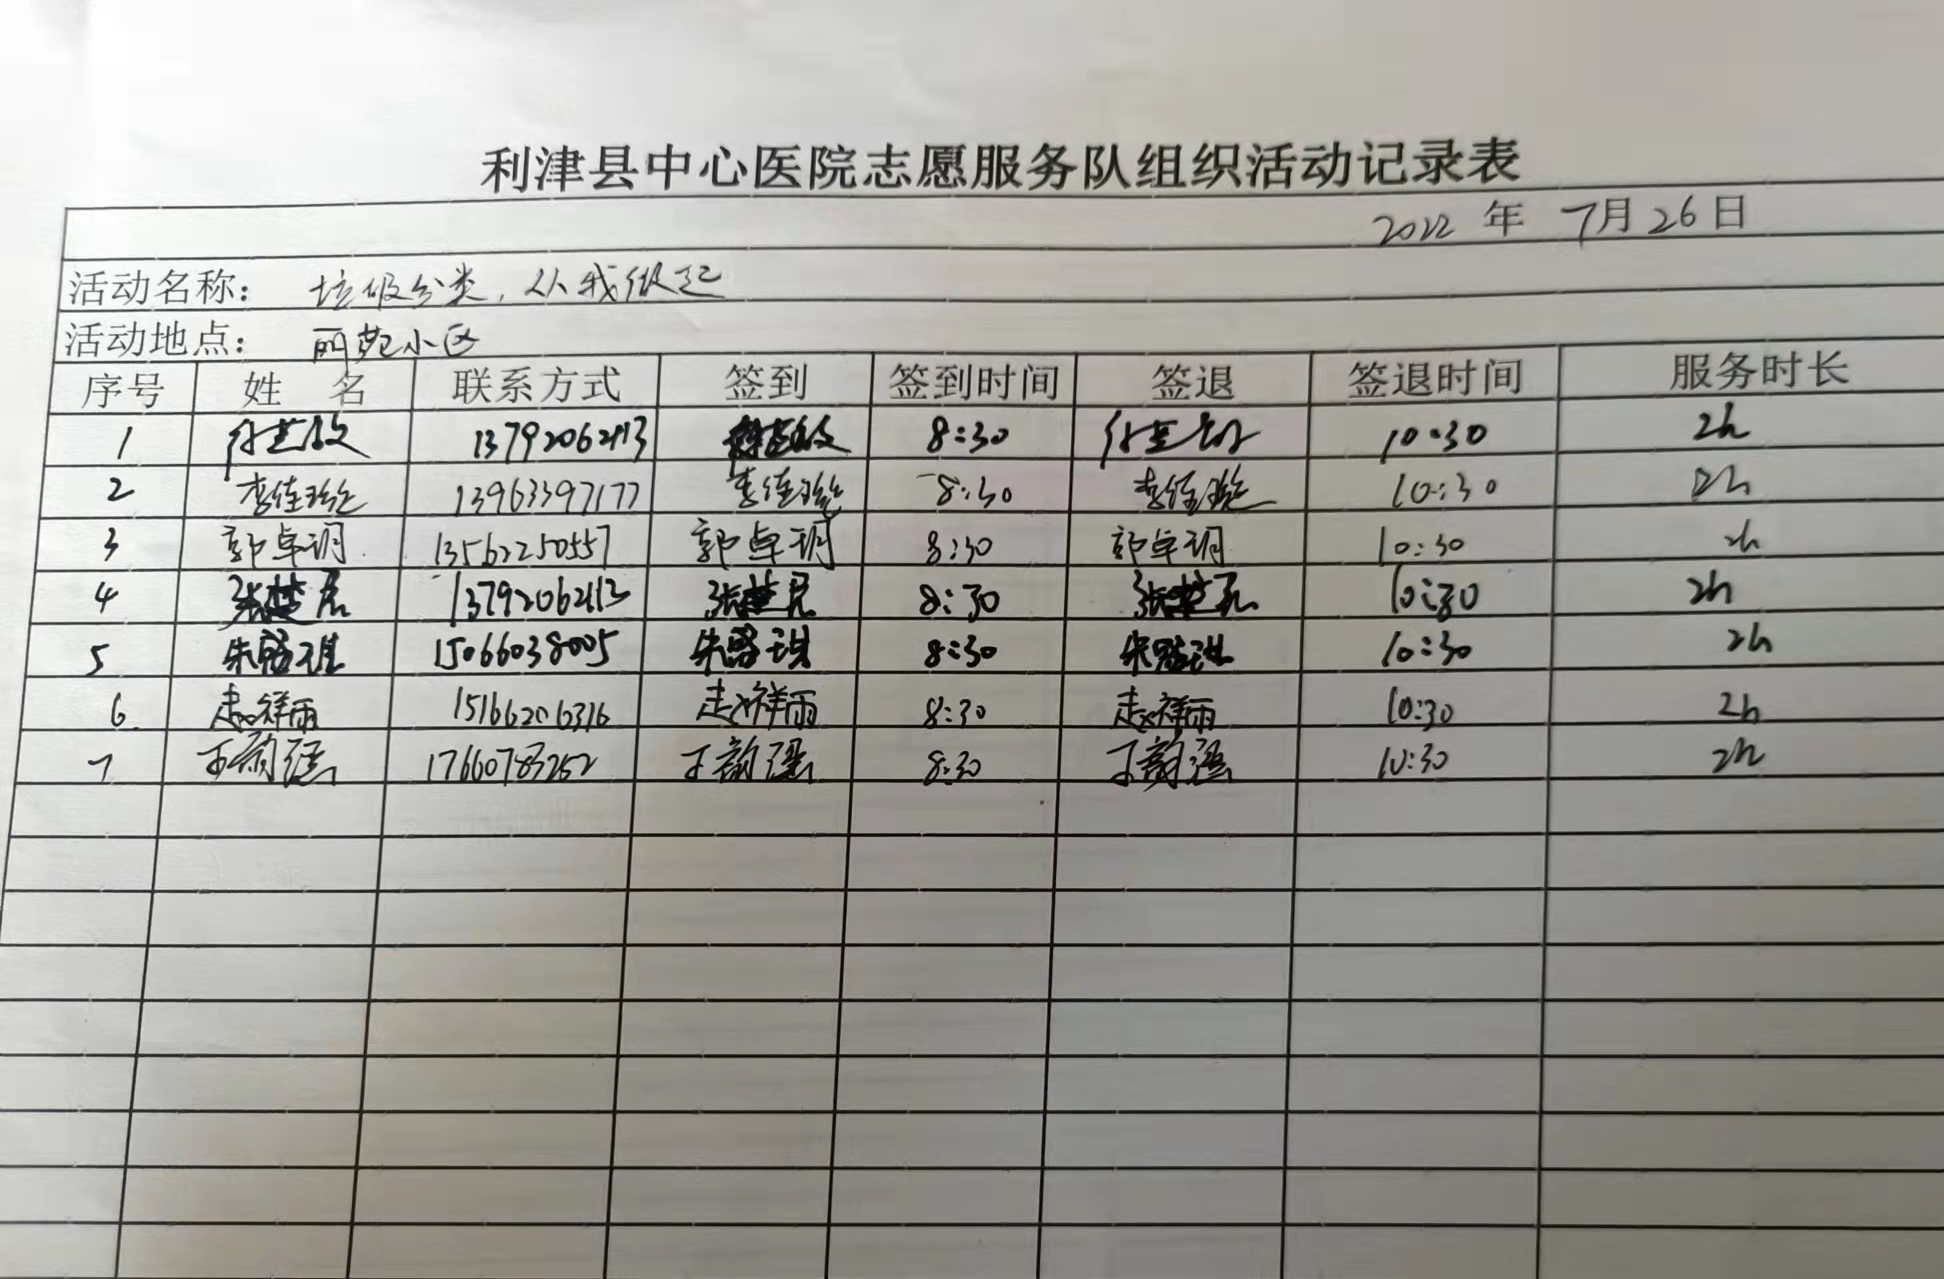 利津县中心医院志愿服务队组织活动记录表
2022 年 7月26日
活动名称: 垃圾分类,从我做起
活动地点: 丽苑小区
序号 姓 名 联系方式 签到 签到时间 签退 签退时间 服务时长
1 13792062113 8:30 10:30 2h
2 李佳 13963397177 李佳 8:30 李佳 10:30 2h
3 郭卓玥 13562250557 郭卓玥 8:30 郭卓玥 10:30 2h
4 张楚 13792062113 张楚 8:30 张楚 10:30 2h
5 朱 琪 15066038005 朱 琪 8:30 朱 琪 10:30 2h
6 赵祥雨 15166206316 赵祥雨 8:30 赵祥雨 10:30 2h
7 王韵 17660783252 王韵 8:30 王韵 10:30 2h